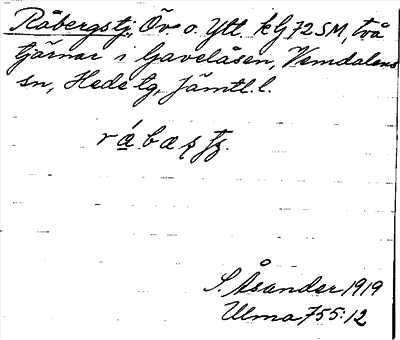 Råbergstj, Öv o. Ytt. kG72SM, två
tjärnar i Gavelåsen, Vemdalens
sn, Hede tg, Jämtl. l.
S. Åsander 1919
Ulma 755:12